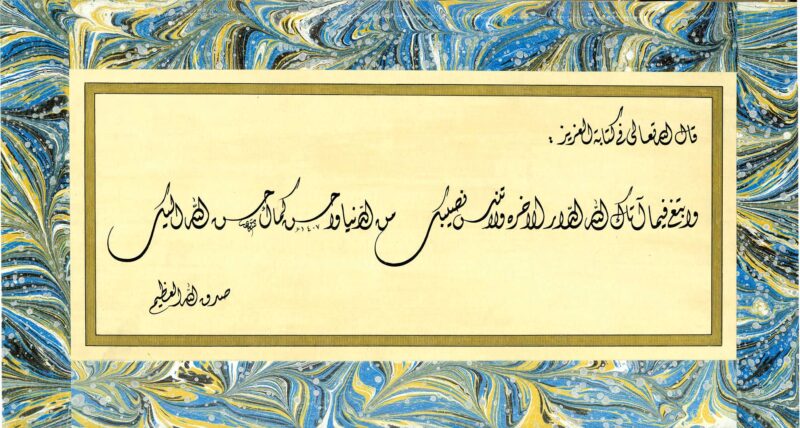 قال الله تعالى في كتابة العزيز :
وابتغ فيما آتاك الله الدار الاخره ولا تنس نصيبك من الدنيا واحسن كما احسن الله اليك
صدق الله العظيم